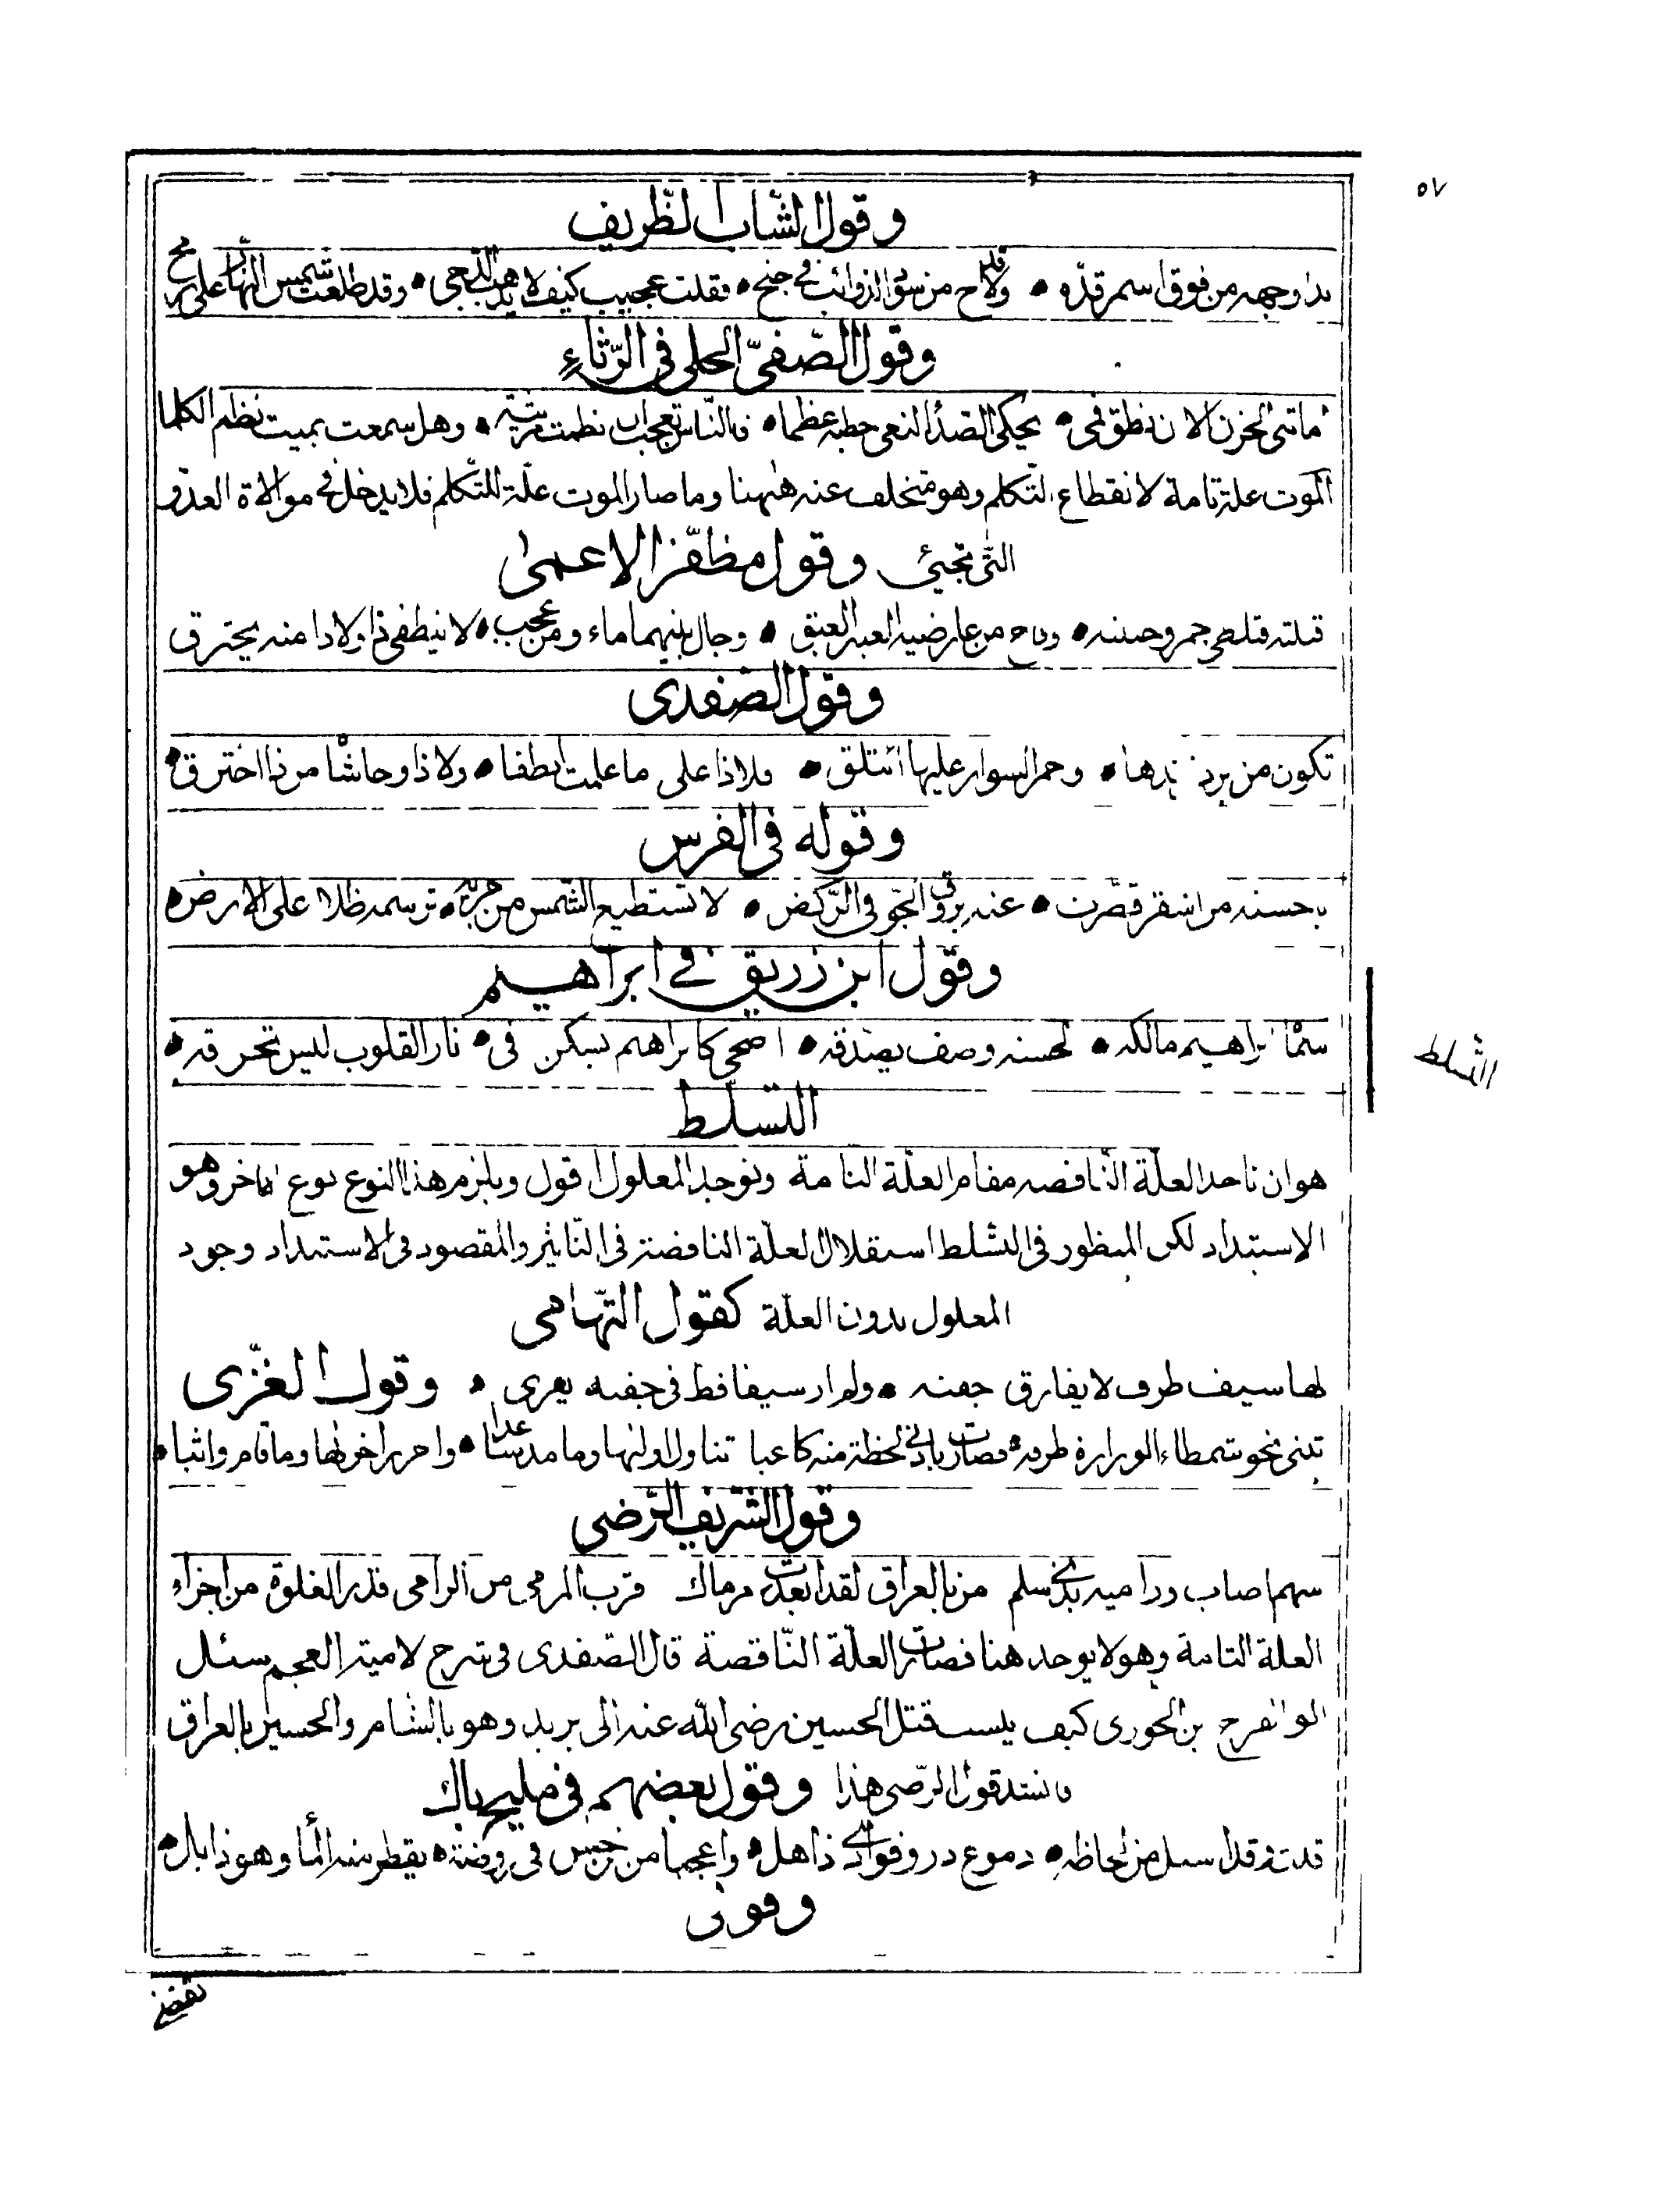 ٥٧
وقول الشاب الظّريف
بدا وجهه من فوق اسمر قدّه • وقد لاح من سود الذوائب في جنح • فقلت عجيب كيف لا يذهب الدّجى • وقد طلعت شمس النّهار على رمح
وقول الصّفيّ الحلي في الرّثاءِ
اماتنى الحزن الا ان نطق فمي • يحكي الصّدأ النعي خطبه عظما • فالنّاس تعجب ان نظمت مرثية • وهل سمعت بميت نظم الكلما
الموت علة تامة لانقطاع التّكلم وهو متخلف عنه هٰهنا وما صار الموت علّة للتّكلم فلا يدخل في موالاة العدّو
التى تجيئ وقول مظفّر الاعمىٰ
قبلته فتلظى جمر وجنته • وفاح من عارضيه العبر العبق • وجال بينهما ماء ومن عجب • لا ينطفى ذا ولا ذا منه يحترق
وقول الصّفدى
تكون من برد زندها • وجمر السوار عليها ائتلق • فلا ذا على ما علمت انطفا • ولا ذا وحاشا من ذا احترق •
وقوله فى الفرس
يا حسنه من اشقر قصّرت • عنه بروق الجّو فى الرّكض • لا تستطيع الشّمس من جريه • ترسمه ظلا على الارض •
وقول ابن زريق في ابراهيم
ابراهيم مالكه • لحسنه وصف يصدّقه • اضحى كابراهيم يسكن فى • نار القلوب ليس تحرقه •
التسلط
التسلط
هو ان تاخذ العلّة النّاقصه مقام العلّة التامة وتوجد المعلول اقول ويلزم هذا النوع نوع آخر وهو
الاستبداد لكن المنظور فى التسلط استقلال العلّة الناقصة فى التّاثير والمقصود فى الاستبداد وجود
المعلول بدون العلّة كقول التّهامى
لها سيف طرف لا يفارق جفنه • ولم ار سيفا قط فى جفنه يفرى • وقول الغزّى
نحو شمطاء الوزارة طرفه • فصارت بادنى لحظة منه كاعبا تناول اولٰها وما مد ساعدا • واحرز اخرٰها وما قام واثبا •
وقول الشّريف الرّضى
سهم اصاب وراميه بذي سلم من بالعراق لقد ابعدت مرماك قرب المرمى من الرامى قدر الغلوة من اجزاء
العلة التامة وهو لا يوجد هنا فصارت العلّة النّاقصة قال الصّفدى فى شرح لامية العجم سئل
ابو الفرج بن الجوزى كيف ينسب قتل الحسين رضى اللّه عنه الى يزيد وهو بالشام والحسين بالعراق
فانشد قول الرّضى هذا وقول بعضهم فى مليح باك
من الحاظه • دموع در وفؤادي ذاهل • واعجبا من نرجس فى روضة • يقطر منه المّا وهو ذابل •
وقولى